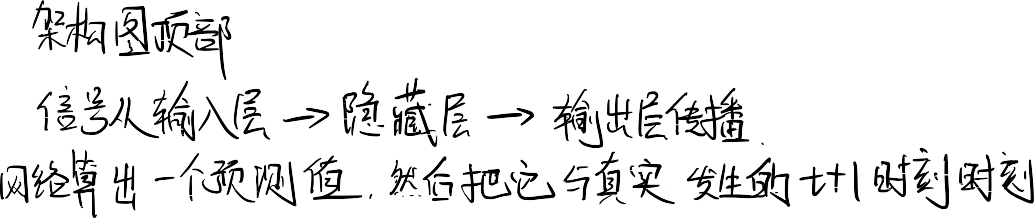 架构图顶部
信号从输入层→隐藏层→输出层传播.
网络算出一个预测值,然后把它与真实发生的t+1时刻时刻